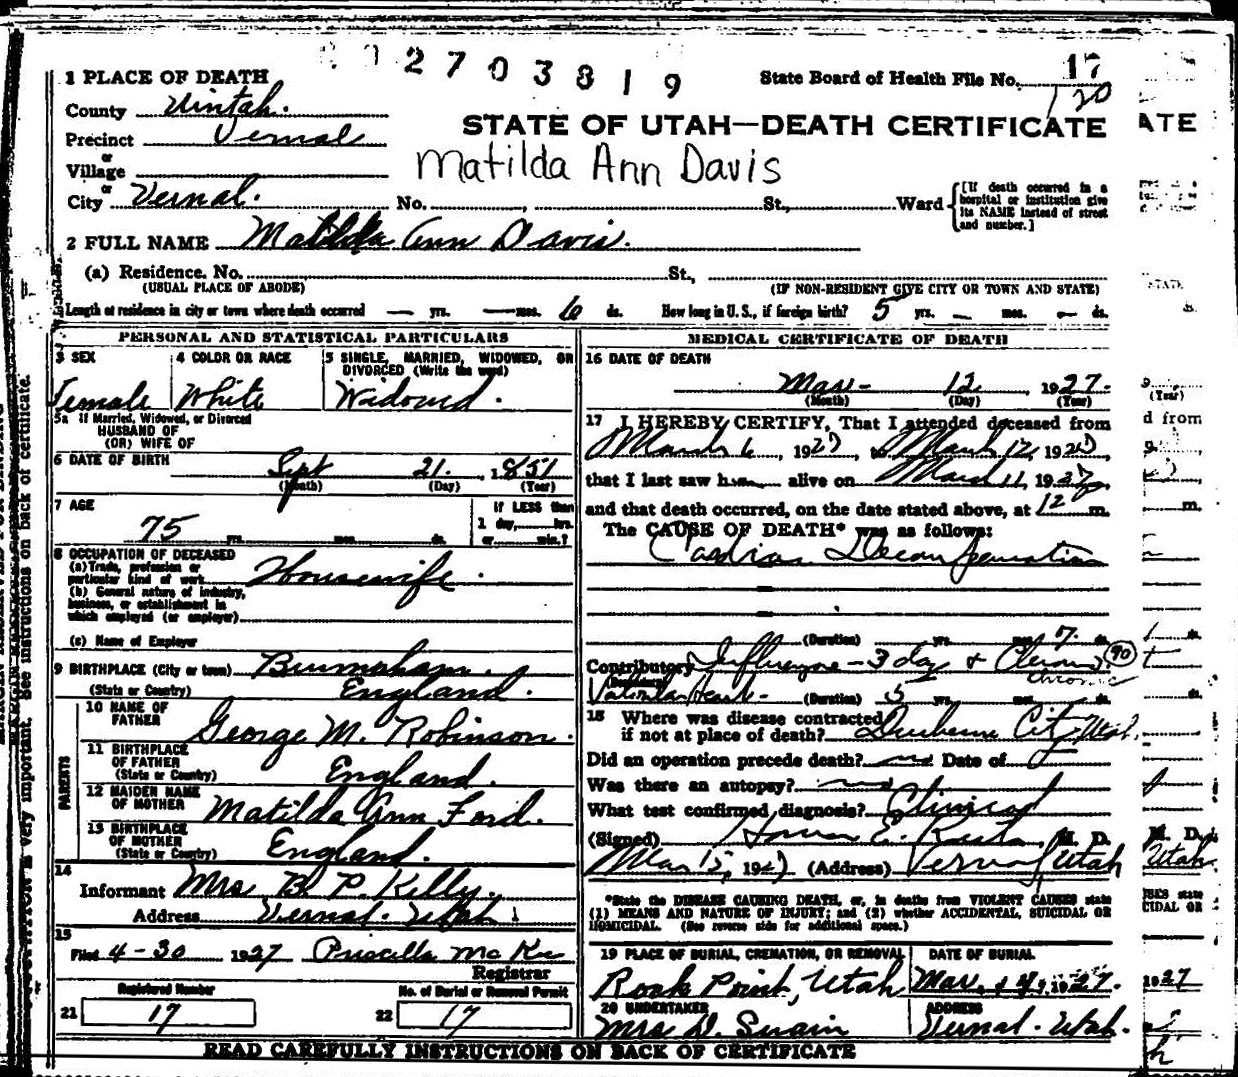 2703819
State Board of Health File No. 17
120
1 PLACE OF DEATH
County Uintah.
STATE OF UTAH—DEATH CERTIFICATE
Precinct Vernal
or
Village
Matilda Ann Davis
or
City Vernal. No. , St., Ward
[If death occurred in a hospital or institution give its NAME instead of street and number.]
2 FULL NAME Matilda Ann Davis.
(a) Residence. No. St.,
(USUAL PLACE OF ABODE) (IF NON-RESIDENT GIVE CITY OR TOWN AND STATE)
Length of residence in city or town where death occurred — yrs. — mos. 6 ds. How long in U. S., if foreign birth? 5 yrs. — mos. — ds.
PERSONAL AND STATISTICAL PARTICULARS
3 SEX 4 COLOR OR RACE 5 SINGLE, MARRIED, WIDOWED, OR DIVORCED (Write the word)
Female White Widowed.
5a If Married, Widowed, or Divorced
HUSBAND OF
(OR) WIFE OF
6 DATE OF BIRTH Sept 21. 1851
(Month) (Day) (Year)
7 AGE If LESS than
75 yrs. mos. ds. 1 day, hrs.
or min.?
8 OCCUPATION OF DECEASED
(a) Trade, profession or
particular kind of work Housewife.
(b) General nature of industry,
business, or establishment in
which employed (or employer)
(c) Name of Employer
9 BIRTHPLACE (City or town)
(State or Country) England.
PARENTS
10 NAME OF
FATHER George M. Robinson.
11 BIRTHPLACE
OF FATHER
(State or Country) England.
12 MAIDEN NAME
OF MOTHER Matilda Ann Ford.
13 BIRTHPLACE
OF MOTHER
(State or Country) England.
14
Informant Mrs B. P. Kelly.
Address Vernal. Utah
15
Filed 4-30 1927 Priscilla McKee
Registrar
Registered Number No. of Burial or Removal Permit
21 17 22 17
MEDICAL CERTIFICATE OF DEATH
16 DATE OF DEATH
Mar- 12, 1927.
(Month) (Day) (Year)
17 I HEREBY CERTIFY, That I attended deceased from
March 6, 1927, to March 12, 1927,
that I last saw h alive on March 11, 1927,
and that death occurred, on the date stated above, at 12 m.
The CAUSE OF DEATH* was as follows:
Cardiac Decompensation
(Duration) yrs. mos. 7 ds.
Contributory Influenza - 3 day + 90
Chronic
Valvular Heart- (Duration) 5 yrs. mos. ds.
18 Where was disease contracted
if not at place of death? Duchesne City, Utah.
Did an operation precede death? no Date of
Was there an autopsy? no
What test confirmed diagnosis? Clinical
(Signed) E. M. D.
Mar 15, 1927 (Address) Vernal, Utah
*State the DISEASE CAUSING DEATH, or, in deaths from VIOLENT CAUSES state
(1) MEANS AND NATURE OF INJURY; and (2) whether ACCIDENTAL, SUICIDAL OR
HOMICIDAL. (See reverse side for additional space.)
19 PLACE OF BURIAL, CREMATION, OR REMOVAL DATE OF BURIAL
Rock Point, Utah Mar. 14, 1927.
20 UNDERTAKER ADDRESS
Mrs D. Swain Vernal. Utah.
READ CAREFULLY INSTRUCTIONS ON BACK OF CERTIFICATE
very important. See instructions on back of certificate.
ATE
(Year)
d from
m.
ds.
ds.
M. D.
Utah.
1927